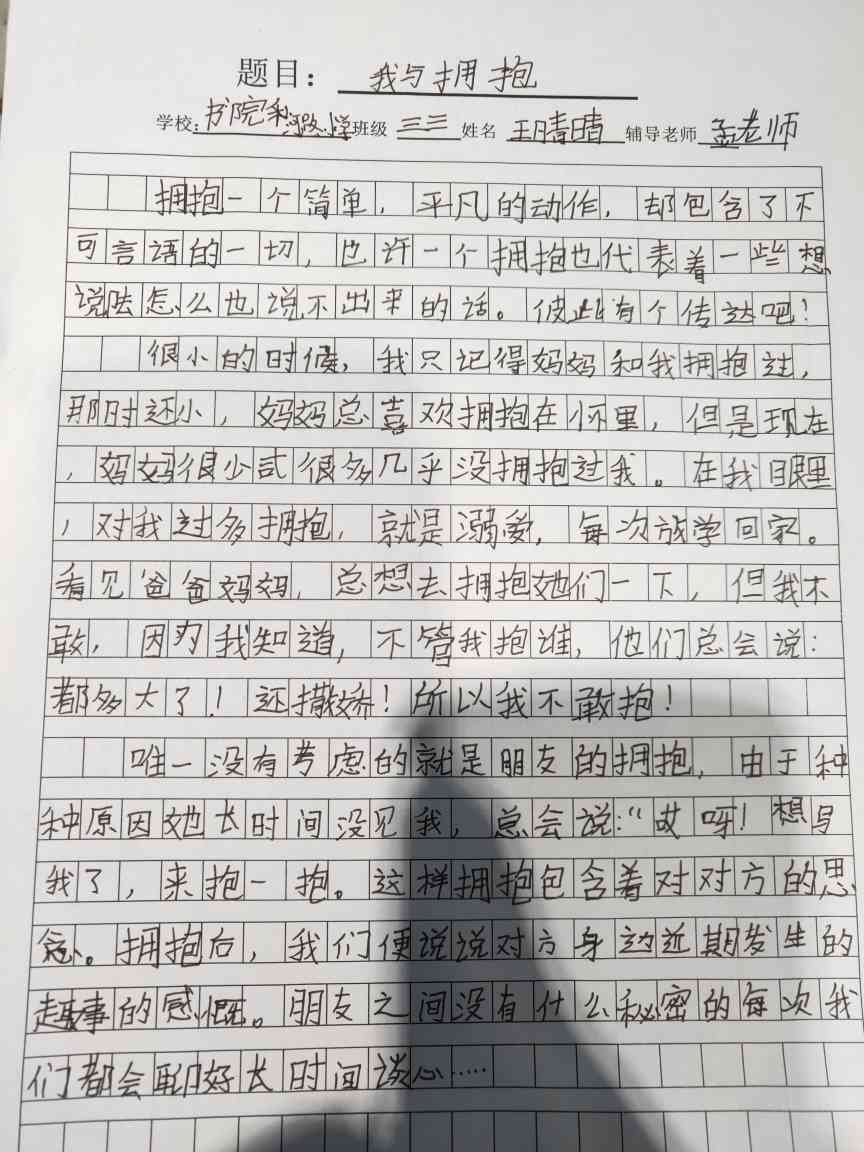 题目：我与拥抱
学校：书院 小学班级 三三 姓名 王晴晴 辅导老师 孟老师
拥抱一个简单，平凡的动作，却包含了不
可言语的一切，也许一个拥抱也代表着一些想
说怯怎么也说不出来的话。彼此有个传达吧！
很小的时候，我只记得妈妈和我拥抱过，
那时还小，妈妈总喜欢拥抱在怀里，但是现在
，妈妈很少或很多几乎没拥抱过我。在我眼里
，对我过多拥抱，就是溺爱，每次放学回家。
看见爸爸妈妈，总想去拥抱她们一下，但我不
敢，因为我知道，不管我抱谁，他们总会说：
都多大了！还撒娇！所以我不敢抱！
唯一没有考虑的就是朋友的拥抱，由于种
种原因她长时间没见我，总会说：“哎呀！想
我了，来抱一抱。这样拥抱包含着对对方的思
念。拥抱后，我们便说说对方身边近期发生的
趣事的感慨。朋友之间没有什么秘密的每次我
们都会聊好长时间谈心……